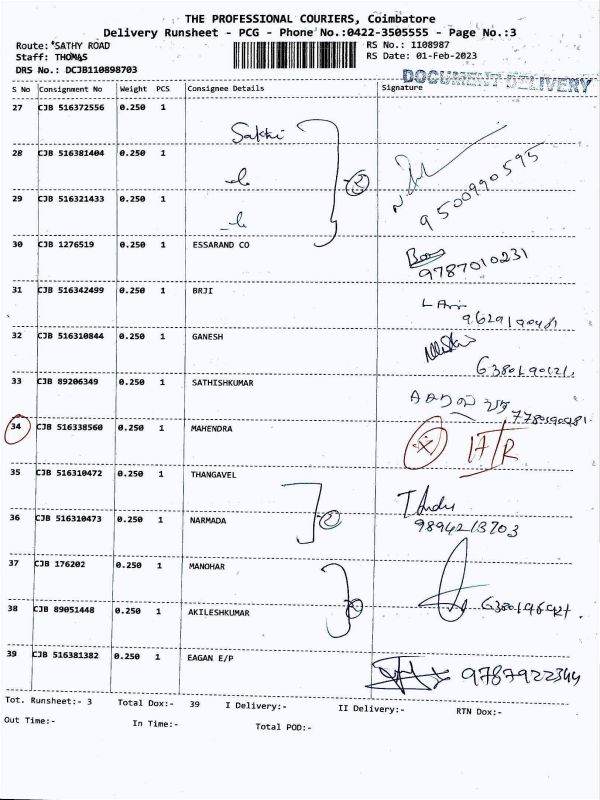 THE PROFESSIONAL COURIERS, Coimbatore
Delivery Runsheet - PCG - Phone No.:0422-3505555 - Page No.:3
Route: SATHY ROAD RS No.: 1108987
Staff: THOMAS RS Date: 01-Feb-2023
DRS No.: DCJB110898703 DOCUMENT DELIVERY
S No Consignment No Weight PCS Consignee Details Signature
27 CJB 516372556 0.250 1 Sakthi
28 CJB 516381404 0.250 1 9500990595
29 CJB 516321433 0.250 1
30 CJB 1276519 0.250 1 ESSARAND CO 9787010231
31 CJB 516342499 0.250 1 BRJI
32 CJB 516310844 0.250 1 GANESH
33 CJB 89206349 0.250 1 SATHISHKUMAR
34 CJB 516338560 0.250 1 MAHENDRA
35 CJB 516310472 0.250 1 THANGAVEL
36 CJB 516310473 0.250 1 NARMADA 9894213703
37 CJB 176202 0.250 1 MANOHAR
38 CJB 89051448 0.250 1 AKILESHKUMAR
39 CJB 516381382 0.250 1 EAGAN E/P 9787922344
Tot. Runsheet:- 3 Total Dox:- 39 I Delivery:- II Delivery:- RTN Dox:-
Out Time:- In Time:- Total POD:-